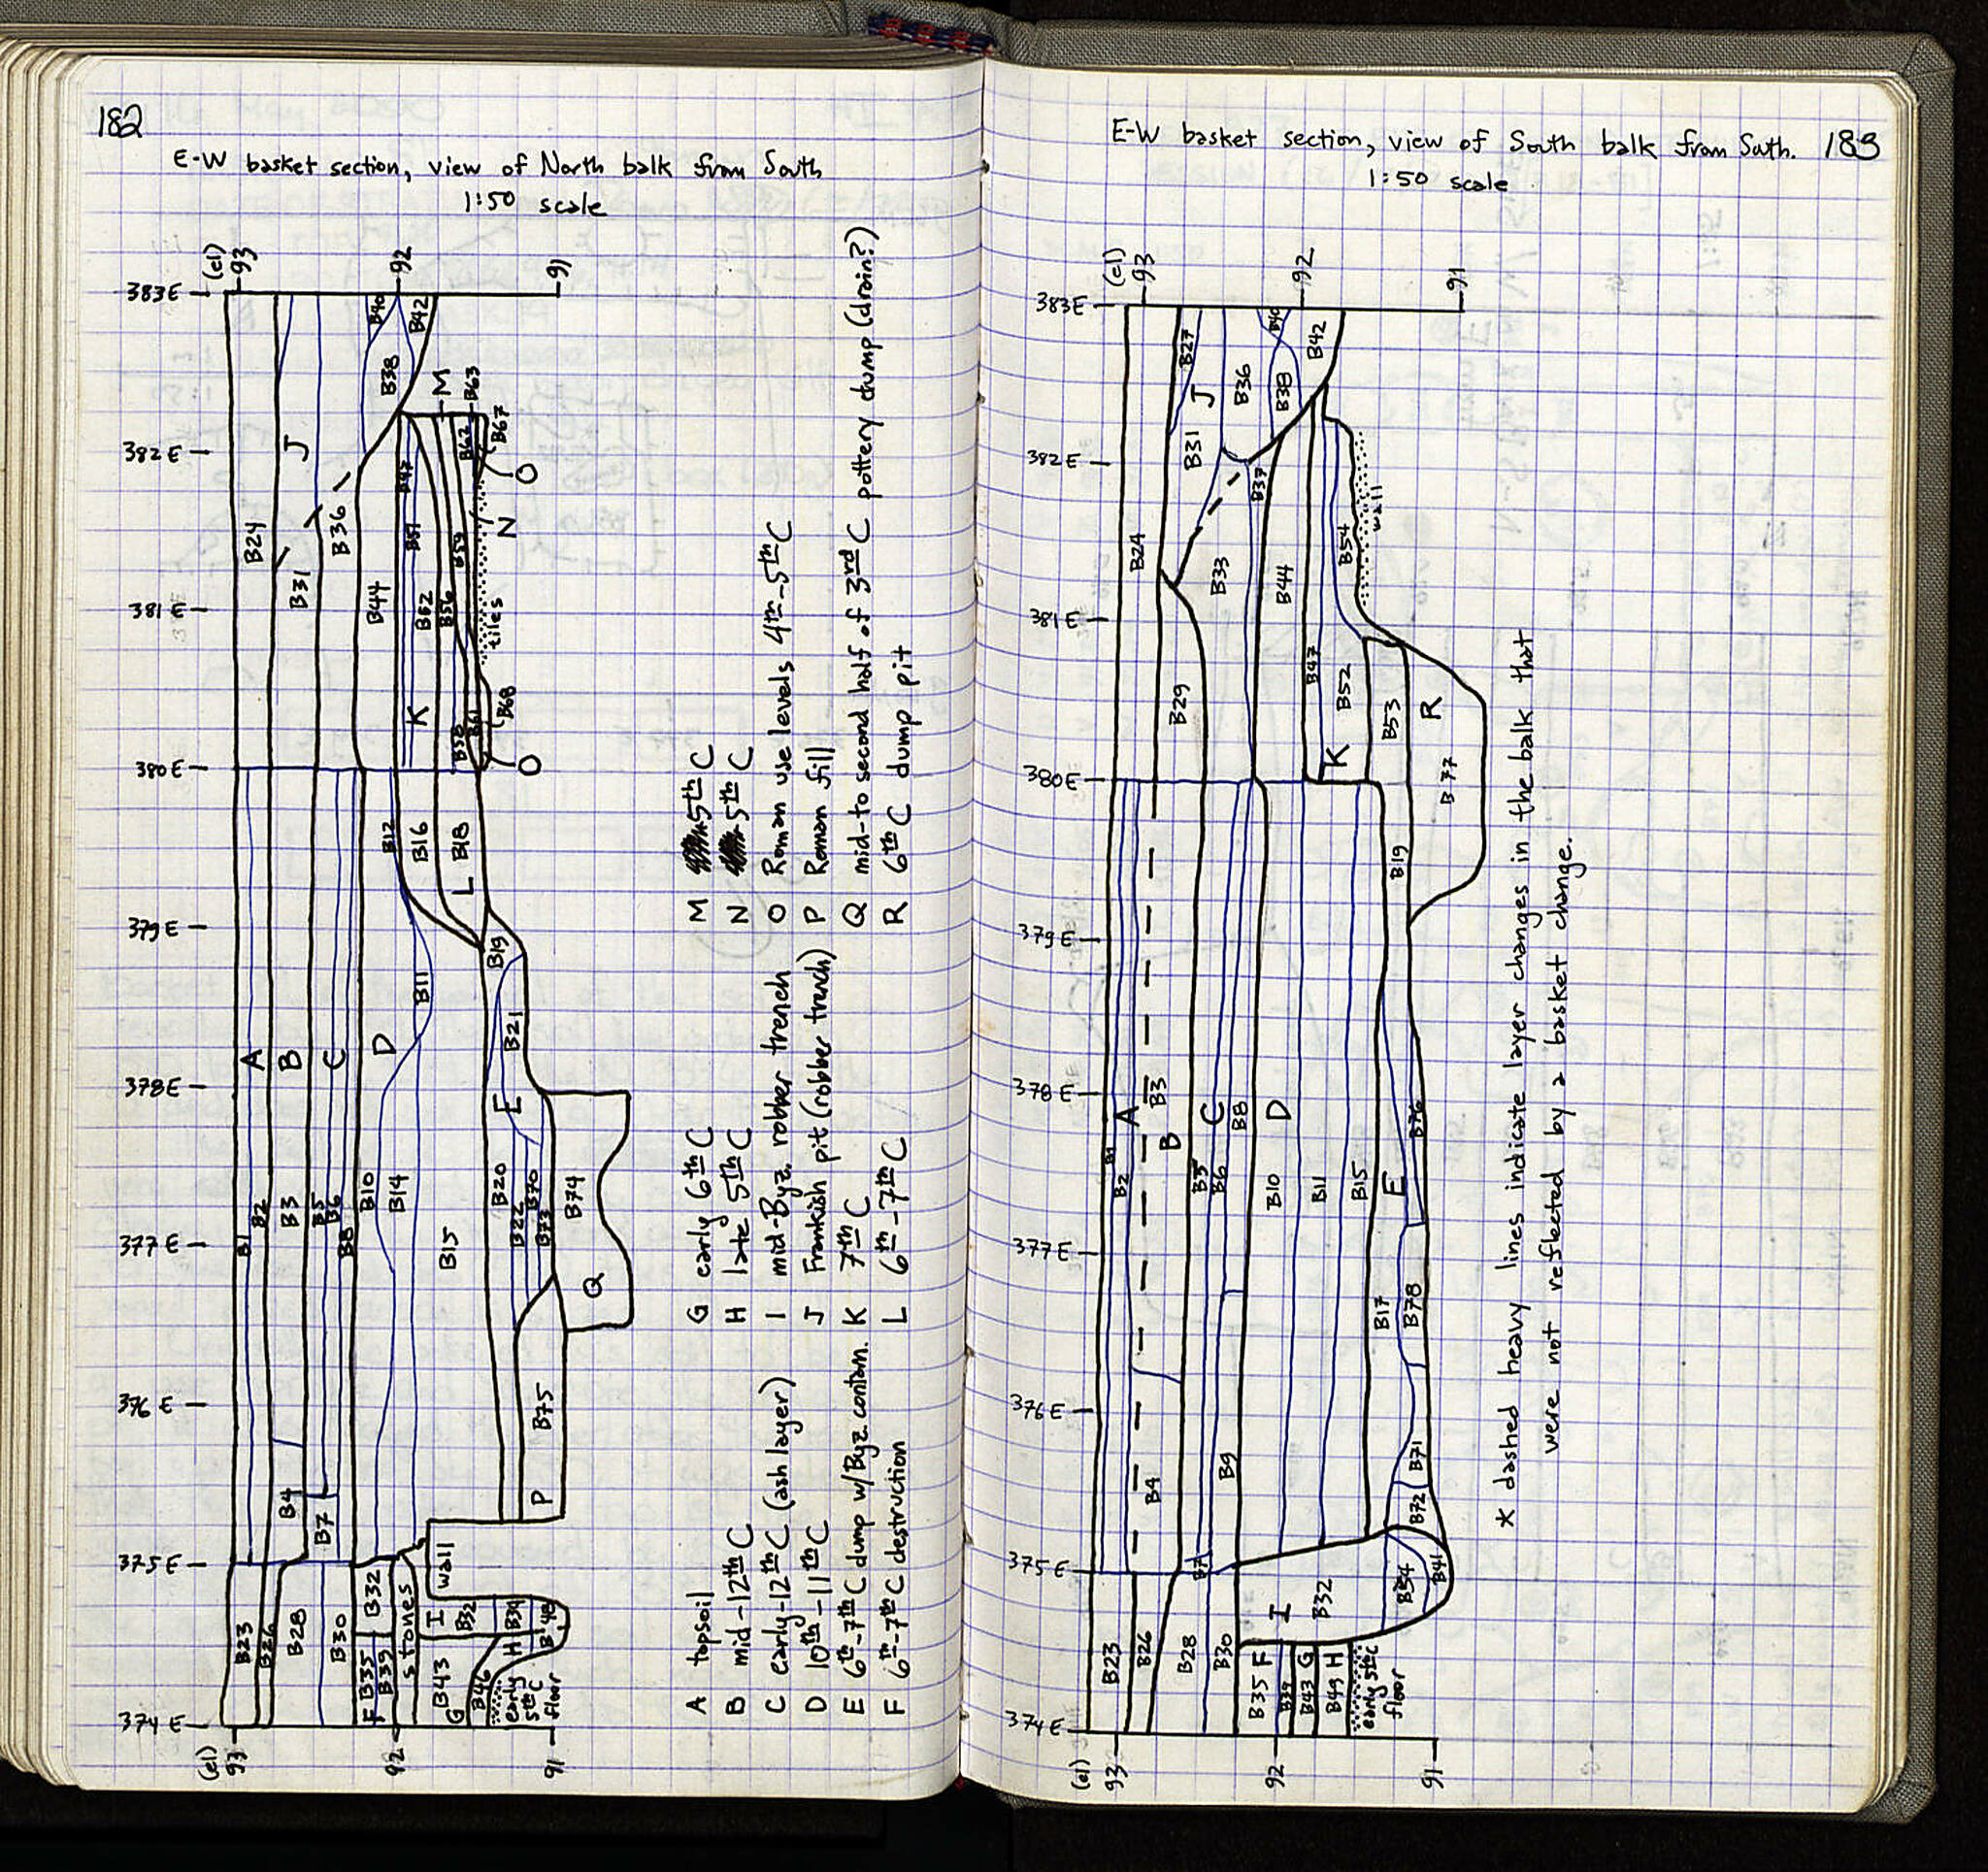 182
E-W basket section, view of North balk from South
1:50 scale
(el)
93
92
91
383E
382E
381E
380E
379E
378E
377E
376E
375E
374E
(el)
93
92
91
B24
J
B31
B36
B38
B40
B42
B44
B47
B51
K
B52
B56
B59
B58
B61
B62
M
B63
B67
O
N
tiles
B68
O
B12
B16
L
B18
B19
A
B
C
D
B11
B21
E
B1
B2
B3
B5
B6
B8
B10
B14
B15
B20
B22
B70
B73
B74
Q
B4
B7
P
B75
wall
B23
B26
B28
B30
B32
F
B35
B39
stones
I
B32
B34
B43
G
B46
H
early
5th C
floor
A topsoil
B mid-12th C
C early-12th C (ash layer)
D 10th-11th C
E 6th-7th C dump w/Byz. contam.
F 6th-7th C destruction
G early 6th C
H late 5th C
I mid-Byz. robber trench
J Frankish pit (robber trench)
K 7th C
L 6th-7th C
M 5th C
N 5th C
O Roman use levels 4th-5th C
P Roman fill
Q mid-to second half of 3rd C pottery dump (drain?)
R 6th C dump pit
E-W basket section, view of South balk from South. 183
1:50 scale
(el)
93
92
91
383E
382E
381E
380E
379E
378E
377E
376E
375E
374E
(el)
93
92
91
B24
B27
J
B31
B36
B38
B40
B42
B37
B33
B29
B44
B47
B54
wall
K
B52
B53
R
B77
B19
A
B
C
D
E
B1
B2
B3
B5
B6
B8
B10
B11
B15
B76
B17
B78
B4
B9
B71
B72
B7
B23
B26
B28
B30
I
B32
B34
B41
B35 F
B39
B43 G
B49 H
early 5th C
floor
* dashed heavy lines indicate layer changes in the balk that
were not reflected by a basket change.